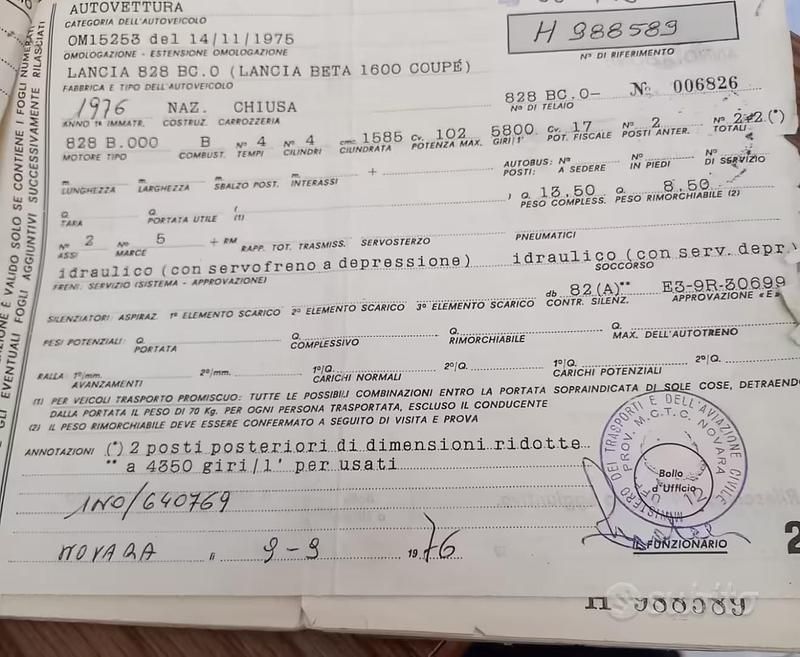 AUTOVETTURA
CATEGORIA DELL'AUTOVEICOLO
H 988589
N° DI RIFERIMENTO
OM15253 del 14/11/1975
OMOLOGAZIONE - ESTENSIONE OMOLOGAZIONE
LANCIA 828 BC.0 (LANCIA BETA 1600 COUPÉ)
FABBRICA E TIPO DELL'AUTOVEICOLO
1976 NAZ. CHIUSA 828 BC.0- No 006826
ANNO 1ª IMMATR. COSTRUZ. CARROZZERIA N° DI TELAIO
828 B.000 B N° 4 N° 4 cmc 1585 Cv. 102 5800 Cv. 17 N° 2 N° 2+2(*)
MOTORE TIPO COMBUST. TEMPI CILINDRI CILINDRATA POTENZA MAX. GIRI/1' POT. FISCALE POSTI ANTER. TOTALI
m. m. m. m. + AUTOBUS: N° N° N°
LUNGHEZZA LARGHEZZA SBALZO POST. INTERASSI POSTI: A SEDERE IN PIEDI DI SERVIZIO
Q. Q. ( , Q. 13,50 Q. 8,50
TARA PORTATA UTILE (1) PESO COMPLESS. PESO RIMORCHIABILE (2)
N° 2 N° 5 + RM
ASSI MARCE RAPP. TOT. TRASMISS. SERVOSTERZO PNEUMATICI
idraulico (con servofreno a depressione) idraulico (con serv. depr.
FRENI. SERVIZIO (SISTEMA - APPROVAZIONE) SOCCORSO
db 82(A)** E3-9R-30699
SILENZIATORI: ASPIRAZ. 1° ELEMENTO SCARICO 2° ELEMENTO SCARICO 3° ELEMENTO SCARICO CONTR. SILENZ. APPROVAZIONE «E»
PESI POTENZIALI: Q. Q. Q. Q.
PORTATA COMPLESSIVO RIMORCHIABILE MAX. DELL'AUTOTRENO
RALLA: 1°/mm. 2°/mm. 1°/Q. 2°/Q. 1°/Q. 2°/Q.
AVANZAMENTI CARICHI NORMALI CARICHI POTENZIALI
(1) PER VEICOLI TRASPORTO PROMISCUO: TUTTE LE POSSIBILI COMBINAZIONI ENTRO LA PORTATA SOPRAINDICATA DI SOLE COSE, DETRAENDO
DALLA PORTATA IL PESO DI 70 Kg. PER OGNI PERSONA TRASPORTATA, ESCLUSO IL CONDUCENTE
(2) IL PESO RIMORCHIABILE DEVE ESSERE CONFERMATO A SEGUITO DI VISITA E PROVA
ANNOTAZIONI (*) 2 posti posteriori di dimensioni ridotte
** a 4350 giri/1' per usati
1NO/640769
NOVARA 9-9 1976
MINISTERO DEI TRASPORTI E DELL'AVIAZIONE CIVILE
UFF. PROV. M.C.T.C. NOVARA
12
Bollo
d'Ufficio
IL FUNZIONARIO
2
H 988589
subito
EVENTUALI FOGLI AGGIUNTIVI SUCCESSIVAMENTE RILASCIATI
È VALIDO SOLO SE CONTIENE I FOGLI NUMERATI